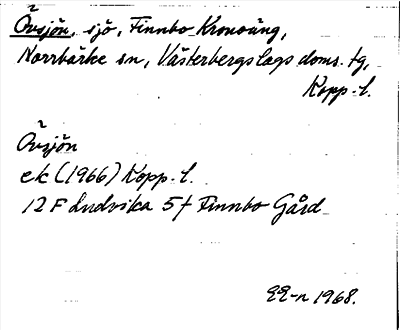 Övsjön, sjö, Finnbo Kronoäng,
Norrbärke sn, Västerbergslags doms. tg,
Kopp. l.
Övsjön
ek (1966) Kopp. l.
12 F Ludvika 5 f Finnbo Gård
1968.